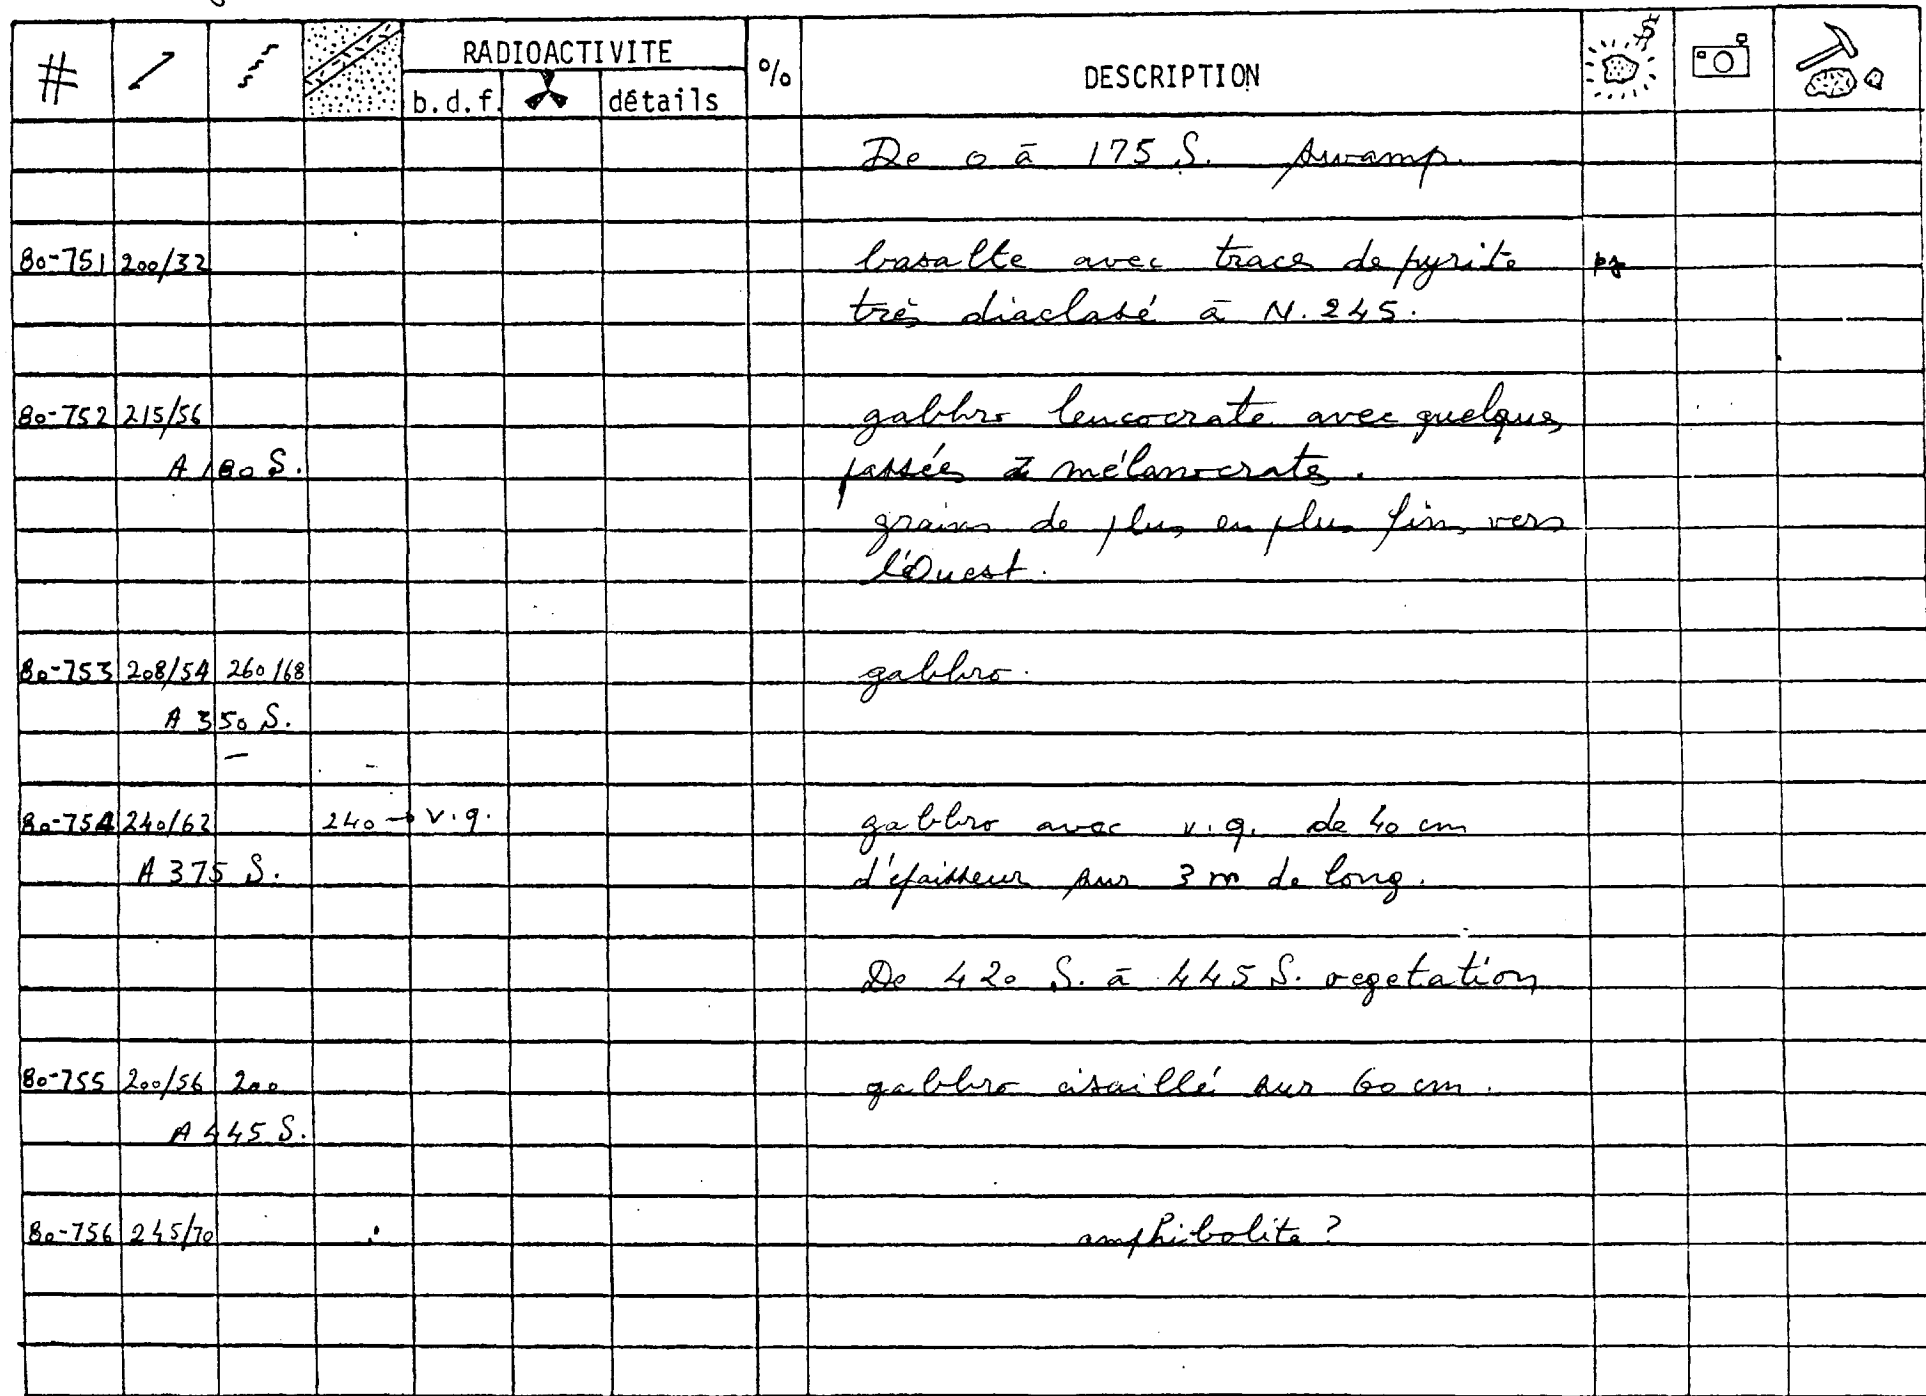 # RADIOACTIVITE % DESCRIPTION $
b.d.f. détails
De 0 à 175 S. swamp.
80-751 200/32 basalte avec trace de pyrite py
très diaclasé à N. 245.
80-752 215/56 gabbro leucocrate avec quelques
A 180 S. passées mélanocrates.
grains de plus en plus fins vers
l'Ouest.
80-753 208/54 260/68 gabbro.
A 350 S.
80-754 240/62 240 → v.q. gabbro avec v.q. de 40 cm
A 375 S. d'épaisseur sur 3 m de long.
De 420 S. à 445 S. vegetation
80-755 200/56 200 gabbro cisaillé sur 60 cm.
A 445 S.
80-756 245/70 amphibolite ?